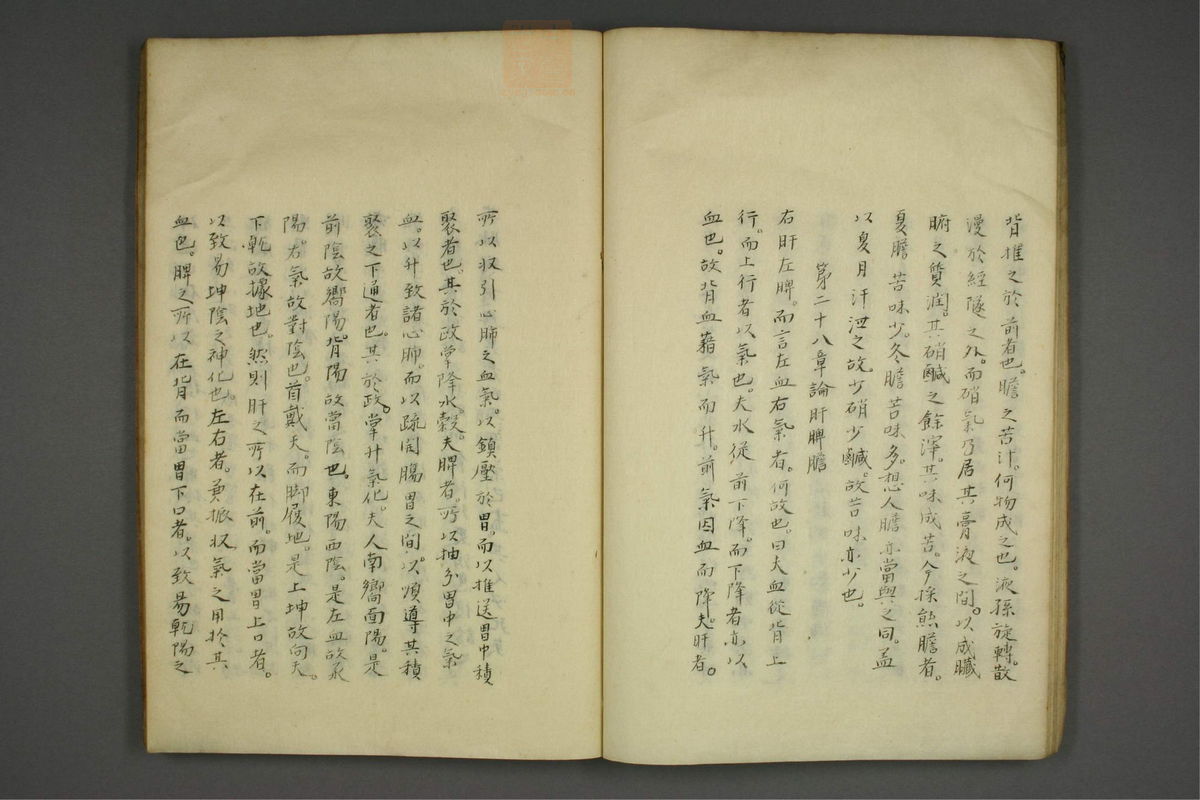 背推之於前者也。膽之苦汁。何物成之也。液孫旋轉。散
漫於經隧之外。而硝氣乃居其膏液之間。以成臟
腑之質潤。其硝鹹之餘滓。其味成苦。今採熊膽者。
夏膽苦味少。冬膽苦味多。想人膽亦當與之同。盖
以夏月汗泄之故。少硝少鹹。故苦味亦少也。
第二十八章論肝脾膽
右肝左脾。而言左血右氣者。何故也。曰夫血從背上
行。而上行者以氣也。夫水從前下降。而下降者亦以
血也。故背血藉氣而升。前氣因血而降。夫肝者。
所以収引心肺之血氣。以鎮壓於胃。而以推送胃中積
聚者也。其於政掌降水。穀。夫脾者。所以抽分胃中之氣
血。以升致諸心肺。而以疏開腸胃之間。以順導其積
聚之下通者也。其於政。掌升氣化。夫人南嚮面陽。是
前陰故嚮陽。背陽故當陰也。東陽西陰。是左血故承
陽。右氣故對陰也。首戴天。而脚履地。是上坤故向天。
下乾故據地也。然則肝之所以在前。而當胃上口者。
以致易坤陰之神化也。左右者。兼振収氣之用於其
血也。脾之所以在背而當胃下口者。以致易乾陽之